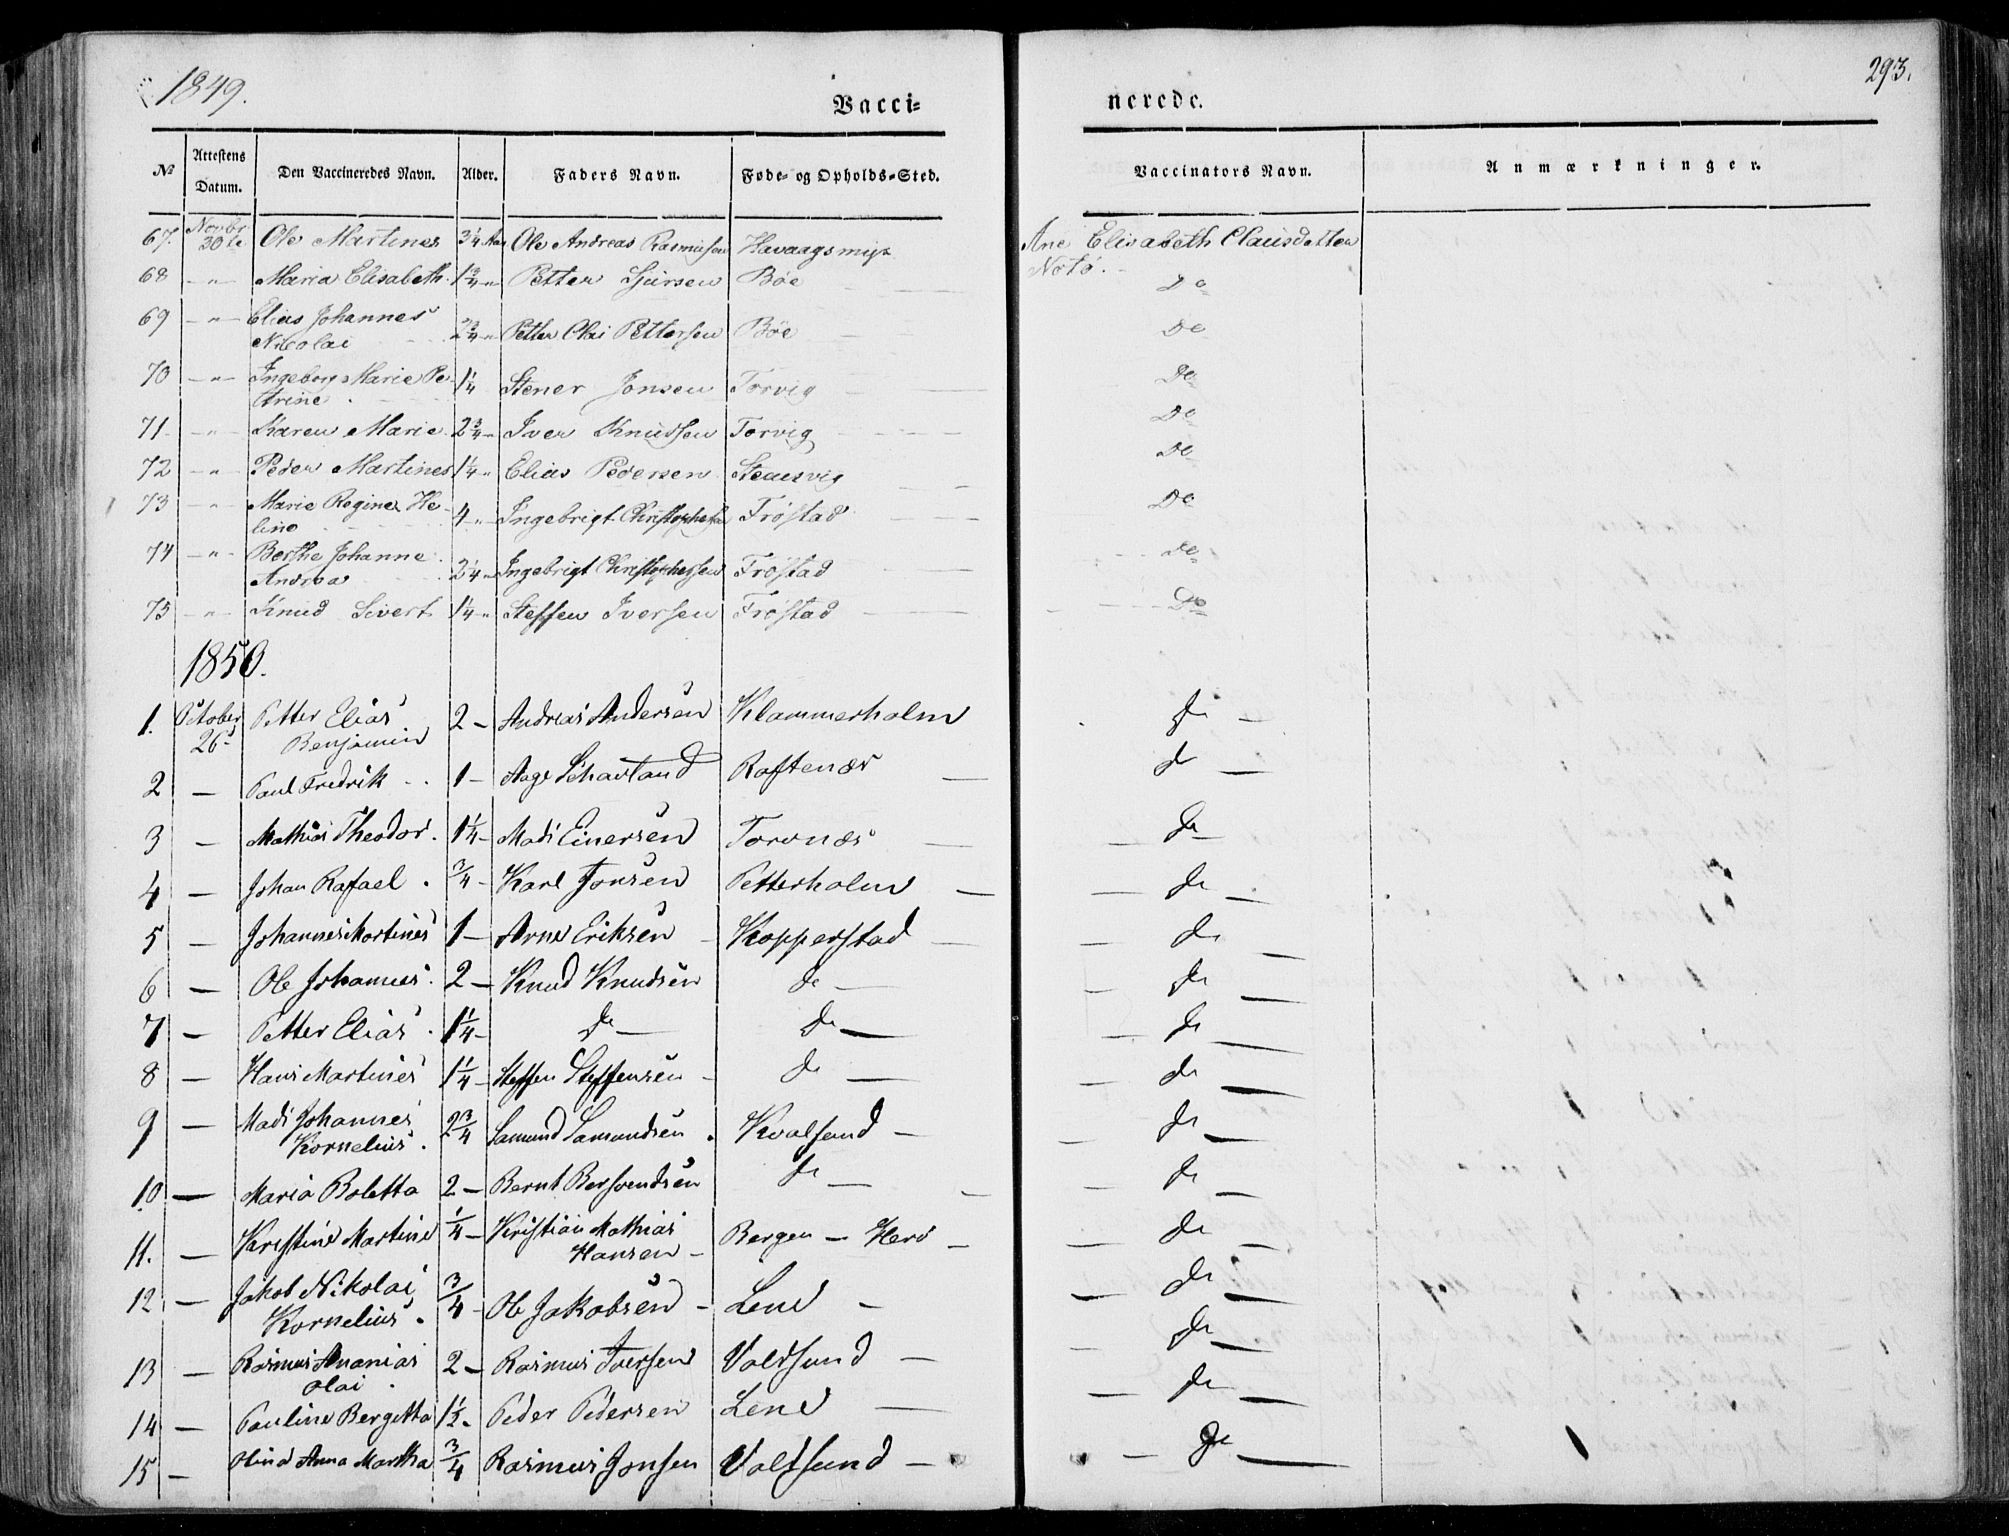 1849.
293.
Vacci=
nerede.
№
Attestens Datum.
Den Vaccineredes Navn.
Alder.
Faders Navn.
Føde= og Opholds=Sted.
Vaccinators Navn.
Anmærkninger.
67. Novbr 30te Ole Martines 3¼ Aar Ole Andreas Rasmussen Havaagsmyr Ane Elisabeth Clausdatter
Notø.
68 -"- Maria Elisabeth 1¾ " Petter Sjursen Bøe Do
69 -"- Elias Johannes
Nicolai 2¾ " Petter Olai Pettersen Bøe Do
70 -"- Ingeborg Marie Pe-
trine 1¼ Stener Jonsen Torvig Do
71 -"- Karen Marie 2¾ " Iver Knudsen Torvig Do
72 -"- Peder Martines 1¼ " Elias Pedersen Do
73 -"- Marie Regine He-
line 4 " Ingebrigt Christophersen Frøstad Do
74 -"- Berthe Johanne
Andrea 2¼ " Ingebrigt Christophersen Frøstad Do
75 -"- Knud Sivert 1¼ " Steffen Iversen Frøstad Do
1850.
1. October 26 Petter Elias
Benjamin 2 - Andreas Andersen Klammerholm do -
2 - Paul Fredrik 1 - Aage Schavland Raftenæs do -
3 - Mathias Theodor 1¼ - Mads Einersen Torvnæs do -
4 - Johan Rafael ¾ - Karl Jonsen Petterholm do -
5 - Johannes Martines 1 - Arne Eriksen Kopperstad do -
6 - Ole Johannes 2 - Knud Knudsen do - do -
7 - Petter Elias 1¼ - do - do - do -
8 - Hans Martines 1¼ - Steffen Steffensen - do - do -
9 - Mads Johannes
Kornelius 2¾ Samund Samundsen Kvalsund - do -
10 - Maria Boletta 2 - Bernt Bersvendsen do - do -
11. - Karestine Martine ¼ - Kristian Mathias
Hansen - Bergen - Herø - do -
12 - Jakob Nikolai
Kornelius ¾ - Ole Jakobsen - Lene - do -
13 - Rasmus Ananias
Olai 2 - Rasmus Iversen Voldsund - do -
14 - Pauline Bergitta 1½ - Peder Pedersen Lene - do -
15 - Olina Anna Martha ¾ Rasmus Jonsen Voldsund - do -